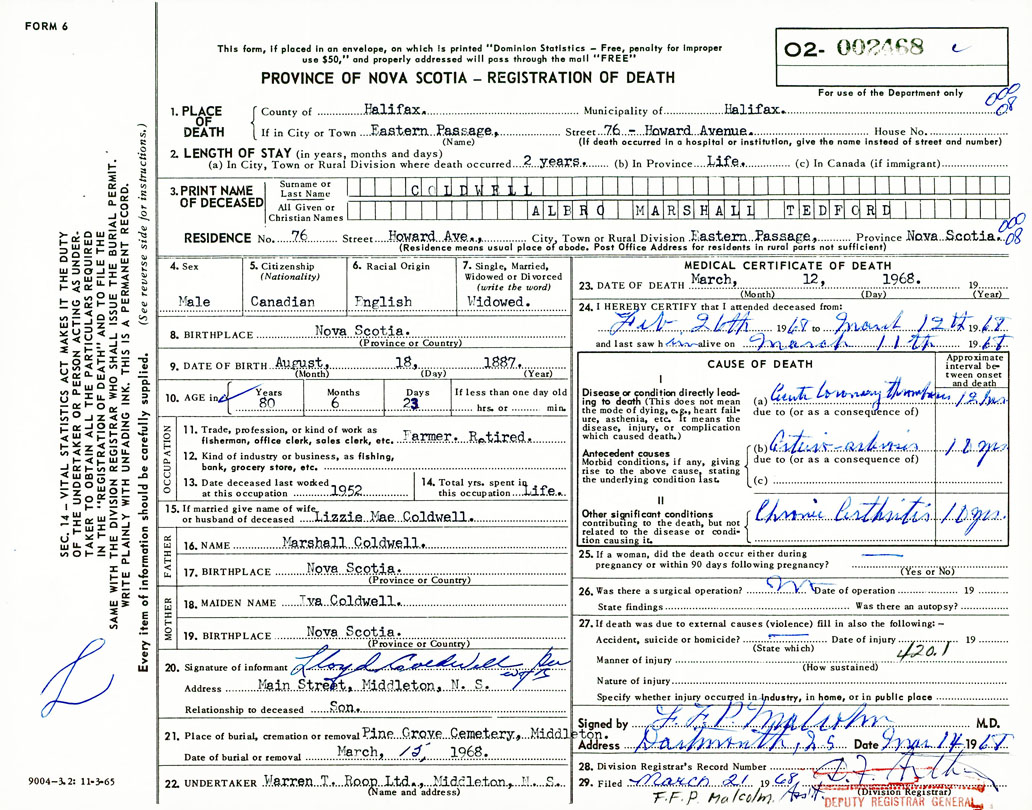 FORM 6
This form, if placed in an envelope, on which is printed "Dominion Statistics — Free, penalty for improper
use $50," and properly addressed will pass through the mail "FREE"
PROVINCE OF NOVA SCOTIA – REGISTRATION OF DEATH
O2- 002468
For use of the Department only
000
08
1. PLACE OF DEATH County of Halifax. Municipality of Halifax.
If in City or Town Eastern Passage, Street 76 - Howard Avenue. House No.
(Name) (If death occurred in a hospital or institution, give the name instead of street and number)
2. LENGTH OF STAY (in years, months and days)
(a) In City, Town or Rural Division where death occurred 2 years. (b) In Province Life. (c) In Canada (if immigrant)
3. PRINT NAME OF DECEASED
Surname or Last Name COLDWELL
All Given or Christian Names ALBRO MARSHALL TEDFORD
000
08
RESIDENCE No. 76 Street Howard Ave., City, Town or Rural Division Eastern Passage, Province Nova Scotia.
(Residence means usual place of abode. Post Office Address for residents in rural parts not sufficient)
4. Sex
Male
5. Citizenship
(Nationality)
Canadian
6. Racial Origin
English
7. Single, Married,
Widowed or Divorced
(write the word)
Widowed.
8. BIRTHPLACE Nova Scotia.
(Province or Country)
9. DATE OF BIRTH August, 18, 1887.
(Month) (Day) (Year)
10. AGE in Years Months Days If less than one day old
80 6 23 hrs. or min.
OCCUPATION
11. Trade, profession, or kind of work as
fisherman, office clerk, sales clerk, etc. Farmer. Retired.
12. Kind of industry or business, as fishing,
bank, grocery store, etc.
13. Date deceased last worked
at this occupation 1952
14. Total yrs. spent in
this occupation Life.
15. If married give name of wife
or husband of deceased Lizzie Mae Coldwell.
FATHER
16. NAME Marshall Coldwell.
17. BIRTHPLACE Nova Scotia.
(Province or Country)
MOTHER
18. MAIDEN NAME Iva Coldwell.
19. BIRTHPLACE Nova Scotia.
(Province or Country)
20. Signature of informant Lloyd Coldwell Per
Address Main Street, Middleton, N. S.
Relationship to deceased Son.
21. Place of burial, cremation or removal Pine Grove Cemetery, Middleton.
Date of burial or removal March, 15, 1968.
22. UNDERTAKER Warren T. Roop Ltd., Middleton, N. S.
(Name and address)
MEDICAL CERTIFICATE OF DEATH
23. DATE OF DEATH March, 12, 1968. 19
(Month) (Day) (Year)
24. I HEREBY CERTIFY that I attended deceased from:
Feb 26th 1968 to March 12th 1968
and last saw him alive on March 11th 1968
CAUSE OF DEATH
Approximate
interval be-
tween onset
and death
I
Disease or condition directly lead-
ing to death (This does not mean
the mode of dying, e.g., heart fail-
ure, asthenia, etc. It means the
disease, injury, or complication
which caused death.)
(a) Acute Coronary thrombosis 12 hrs
due to (or as a consequence of)
Antecedent causes
Morbid conditions, if any, giving
rise to the above cause, stating
the underlying condition last.
(b) 10 yrs
due to (or as a consequence of)
(c)
II
Other significant conditions
contributing to the death, but not
related to the disease or condi-
tion causing it.
Chronic Arthritis 10 yrs.
25. If a woman, did the death occur either during
pregnancy or within 90 days following pregnancy?
(Yes or No)
26. Was there a surgical operation? No Date of operation 19
State findings Was there an autopsy?
27. If death was due to external causes (violence) fill in also the following: –
Accident, suicide or homicide? Date of injury 19
(State which)
420.1
Manner of injury
(How sustained)
Nature of injury
Specify whether injury occurred in industry, in home, or in public place
Signed by F. F. P. Malcolm M.D.
Address Dartmouth, N S Date Mar 14 1968
28. Division Registrar's Record Number
29. Filed March 21 1968
(Division Registrar)
F.F.P Malcolm. Ass't.
DEPUTY REGISTRAR GENERAL
SEC. 14 – VITAL STATISTICS ACT MAKES IT THE DUTY
OF THE UNDERTAKER OR PERSON ACTING AS UNDER-
TAKER TO OBTAIN ALL THE PARTICULARS REQUIRED
IN THE "REGISTRATION OF DEATH" AND TO FILE THE
SAME WITH THE DIVISION REGISTRAR WHO SHALL ISSUE THE BURIAL PERMIT.
WRITE PLAINLY WITH UNFADING INK. THIS IS A PERMANENT RECORD.
Every item of information should be carefully supplied. (See reverse side for instructions.)
9004-3.2: 11-3-65